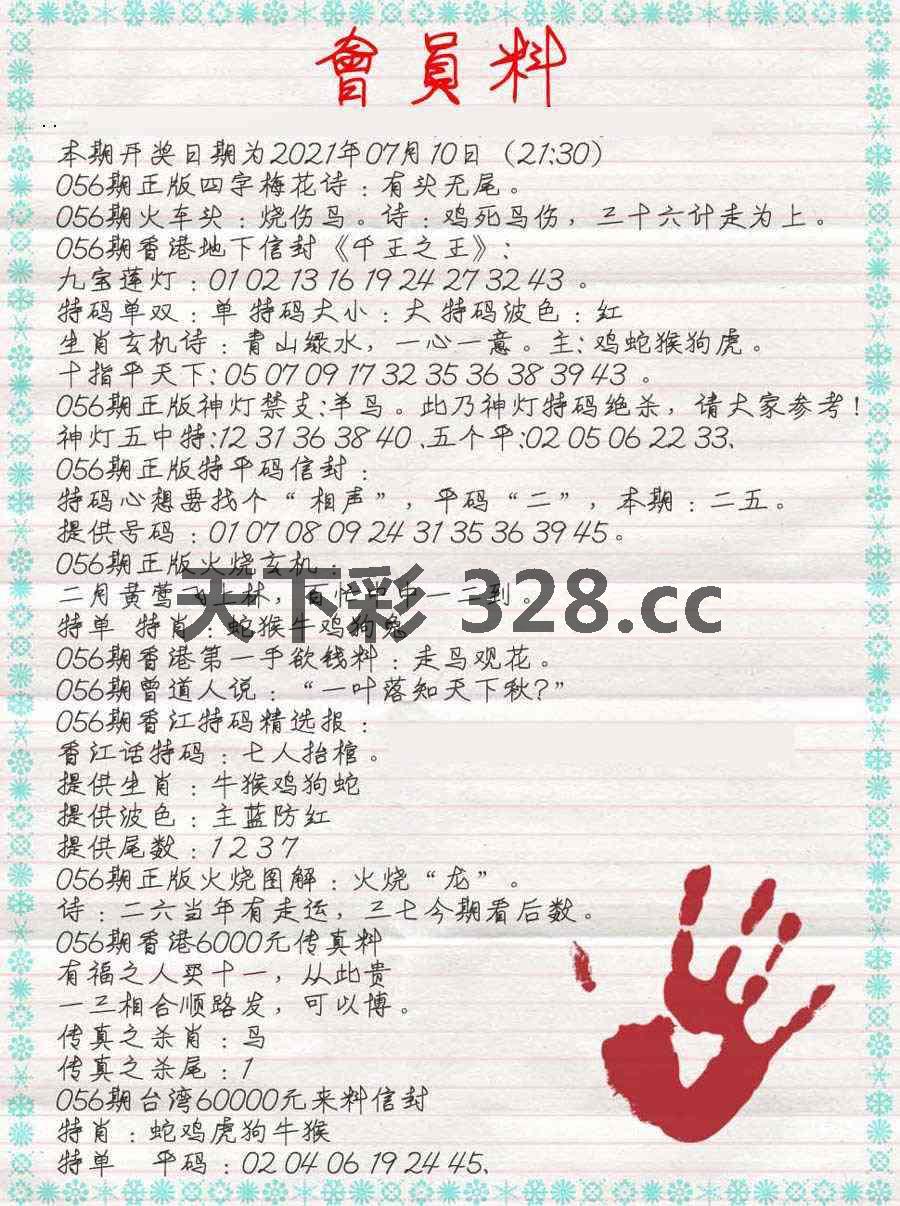 會員料
..
本期开奖日期为2021年07月10日（21:30）
056期正版四字梅花诗：有头无尾。
056期火车头：烧伤鸟。诗：鸡死鸟伤，三十六计走为上。
056期香港地下信封《千王之王》：
九宝莲灯：01 02 13 16 19 24 27 32 43 。
特码单双：单 特码大小：大 特码波色：红
生肖玄机诗：青山绿水，一心一意。主：鸡蛇猴狗虎。
十指平天下：05 07 09 17 32 35 36 38 39 43 。
056期正版神灯禁支：羊鸟。此乃神灯特码绝杀，请大家参考！
神灯五中特：12 31 36 38 40 、五个平：02 05 06 22 33、
056期正版特平码信封：
特码心想要找个“相声”，平码“二”，本期：二五。
提供号码：01 07 08 09 24 31 35 36 39 45。
056期正版火烧玄机：
二月黄莺飞上林，百忙中中一二到。
天下彩 328.cc
特单 特肖：蛇猴牛鸡狗兔
056期香港第一手欲钱料：走鸟观花。
056期曾道人说：“一叶落知天下秋？”
056期香江特码精选报：
香江话特码：七人抬棺。
提供生肖：牛猴鸡狗蛇
提供波色：主蓝防红
提供尾数：1 2 3 7
056期正版火烧图解：火烧“龙”。
诗：二六当年有走运，三七今期看后数。
056期香港6000元传真料
有福之人买十一，从此贵
一三相合顺路发，可以博。
传真之杀肖：鸟
传真之杀尾：1
056期台湾60000元来料信封
特肖：蛇鸡虎狗牛猴
特单 平码：02 04 06 19 24 45、